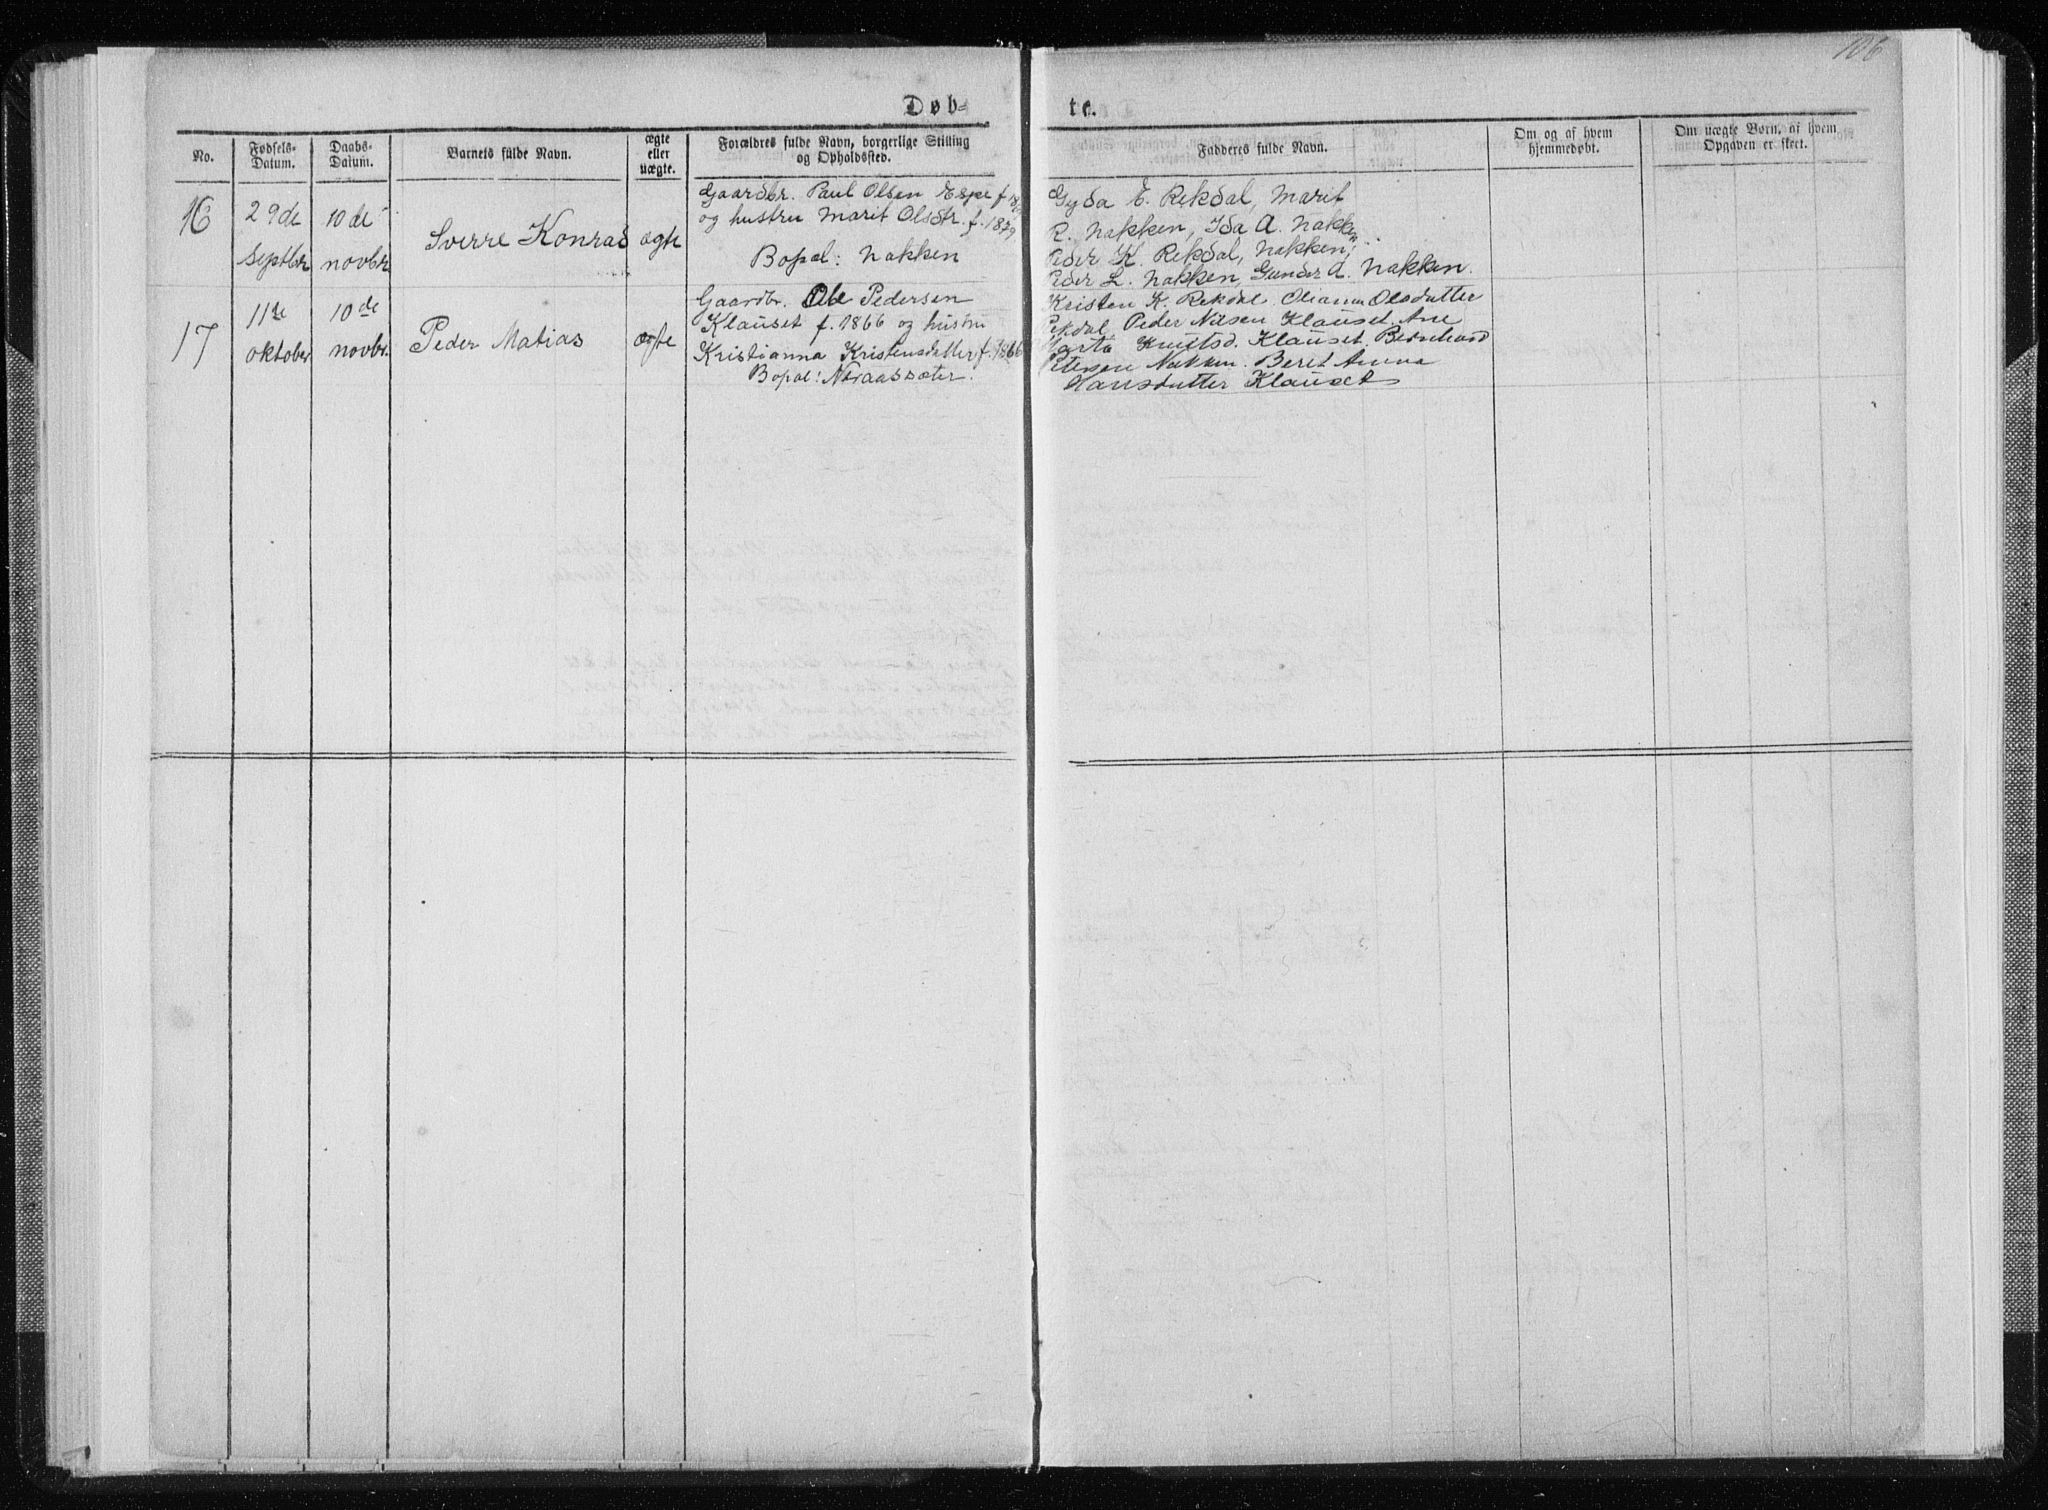 106
Døb-
te.
No.
Fødsels-
Datum.
Daabs-
Datum.
Barnets fulde Navn.
ægte
eller
uægte.
Forældres fulde Navn, borgerlige Stilling
og Opholdssted.
Fadderes fulde Navn.
Om og af hvem
hjemmedøbt.
Om uægte Børn, af hvem
Opgaven er skeet.
16
29de
septbr
10de
novbr
Sverre Konrad
ægte
Gaardbr. Paul Olsen Espe f.
og hustru Marit Olsdtr. f. 1879
Bopæl: Nakken
Gyda E. Rekdal, Marit
R. Nakken, Ida A. Nakken
Peder K. Rekdal, Nakken,
Peder L. Nakken, Gunder A. Nakken.
17
11te
oktober
10de
novbr.
Peder Matias
ægte
Gaardbr. Ole Pedersen
Klauset f. 1866 og hustru
Kristianna Kristensdatter f. 1866
Bopæl: Noraassæter.
Kristen K. Rekdal. Olianna Olsdatter
Rekdal, Peder Nilsen Klauset, Ane
Marta Knutsd. Klauset. Bernhard
Petersen Nakken. Beret Anna
Hansdatter Klauset